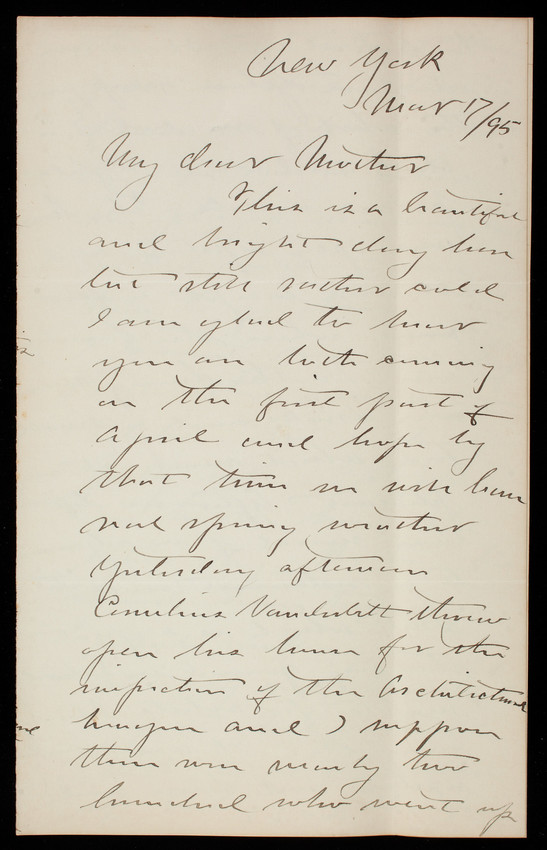 New York
Mar 17/95
My dear Mother
This is a beautiful
and bright day here
but still rather cold
I am glad to hear
you are both coming
on the first part of
April and hope by
that time we will have
real spring weather
Yesterday afternoon
Cornelius Vanderbilt threw
open his house for the
inspection of the Architectural
League and I suppose
there were nearly two
hundred who went up